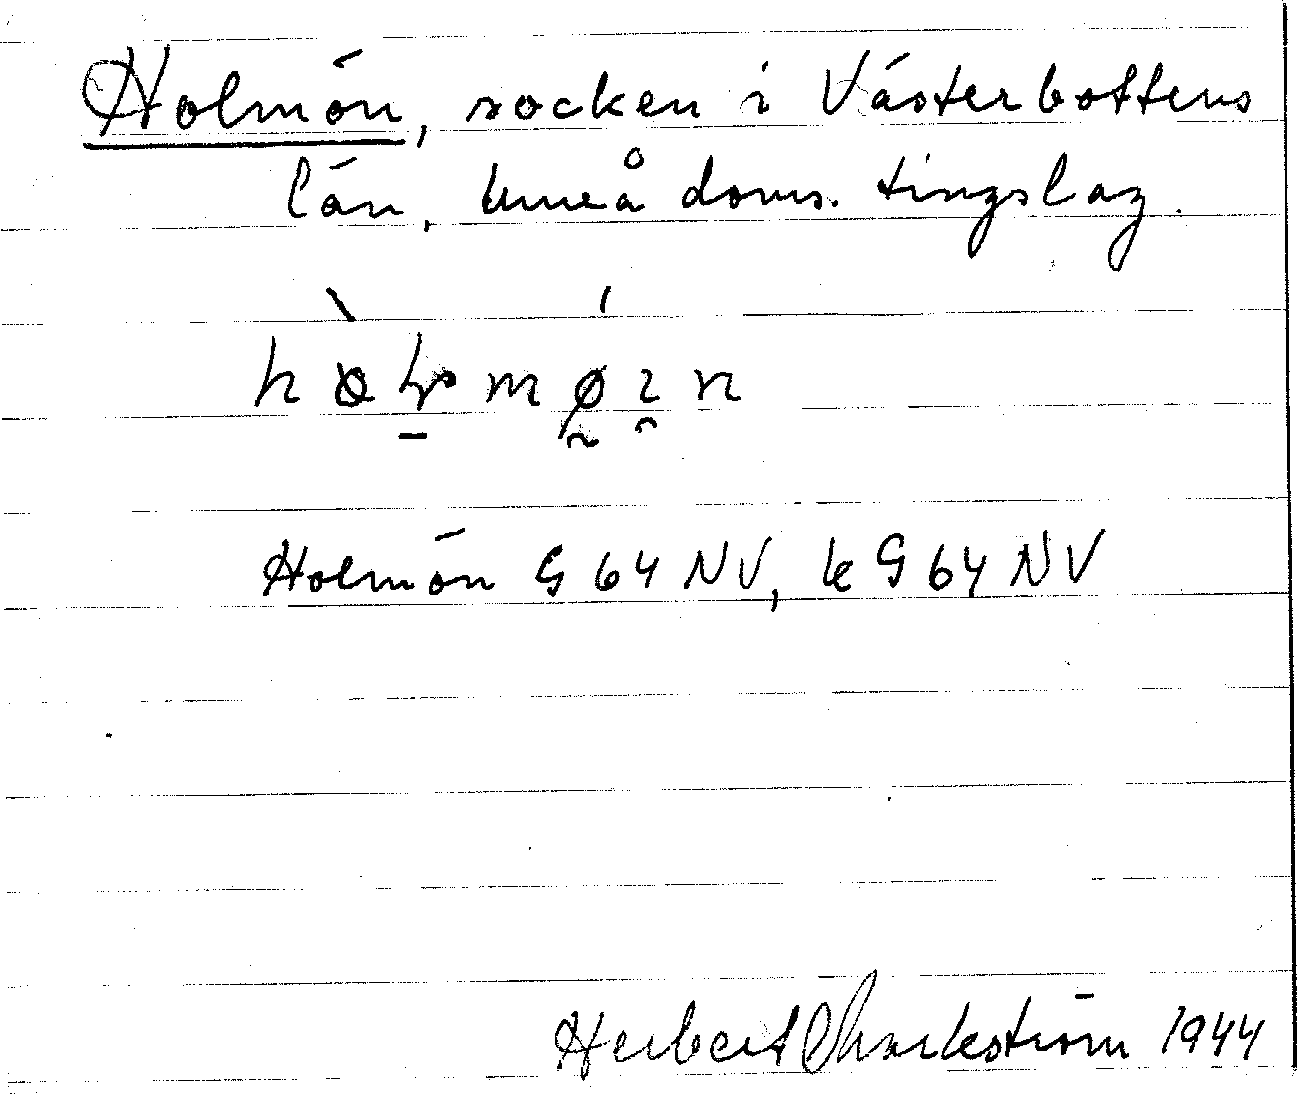 Holmön, socken i Västerbottens
län, Umeå doms. tingslag.
Holmön G 64 NV, k G 64 NV
Herbert Markström 1944